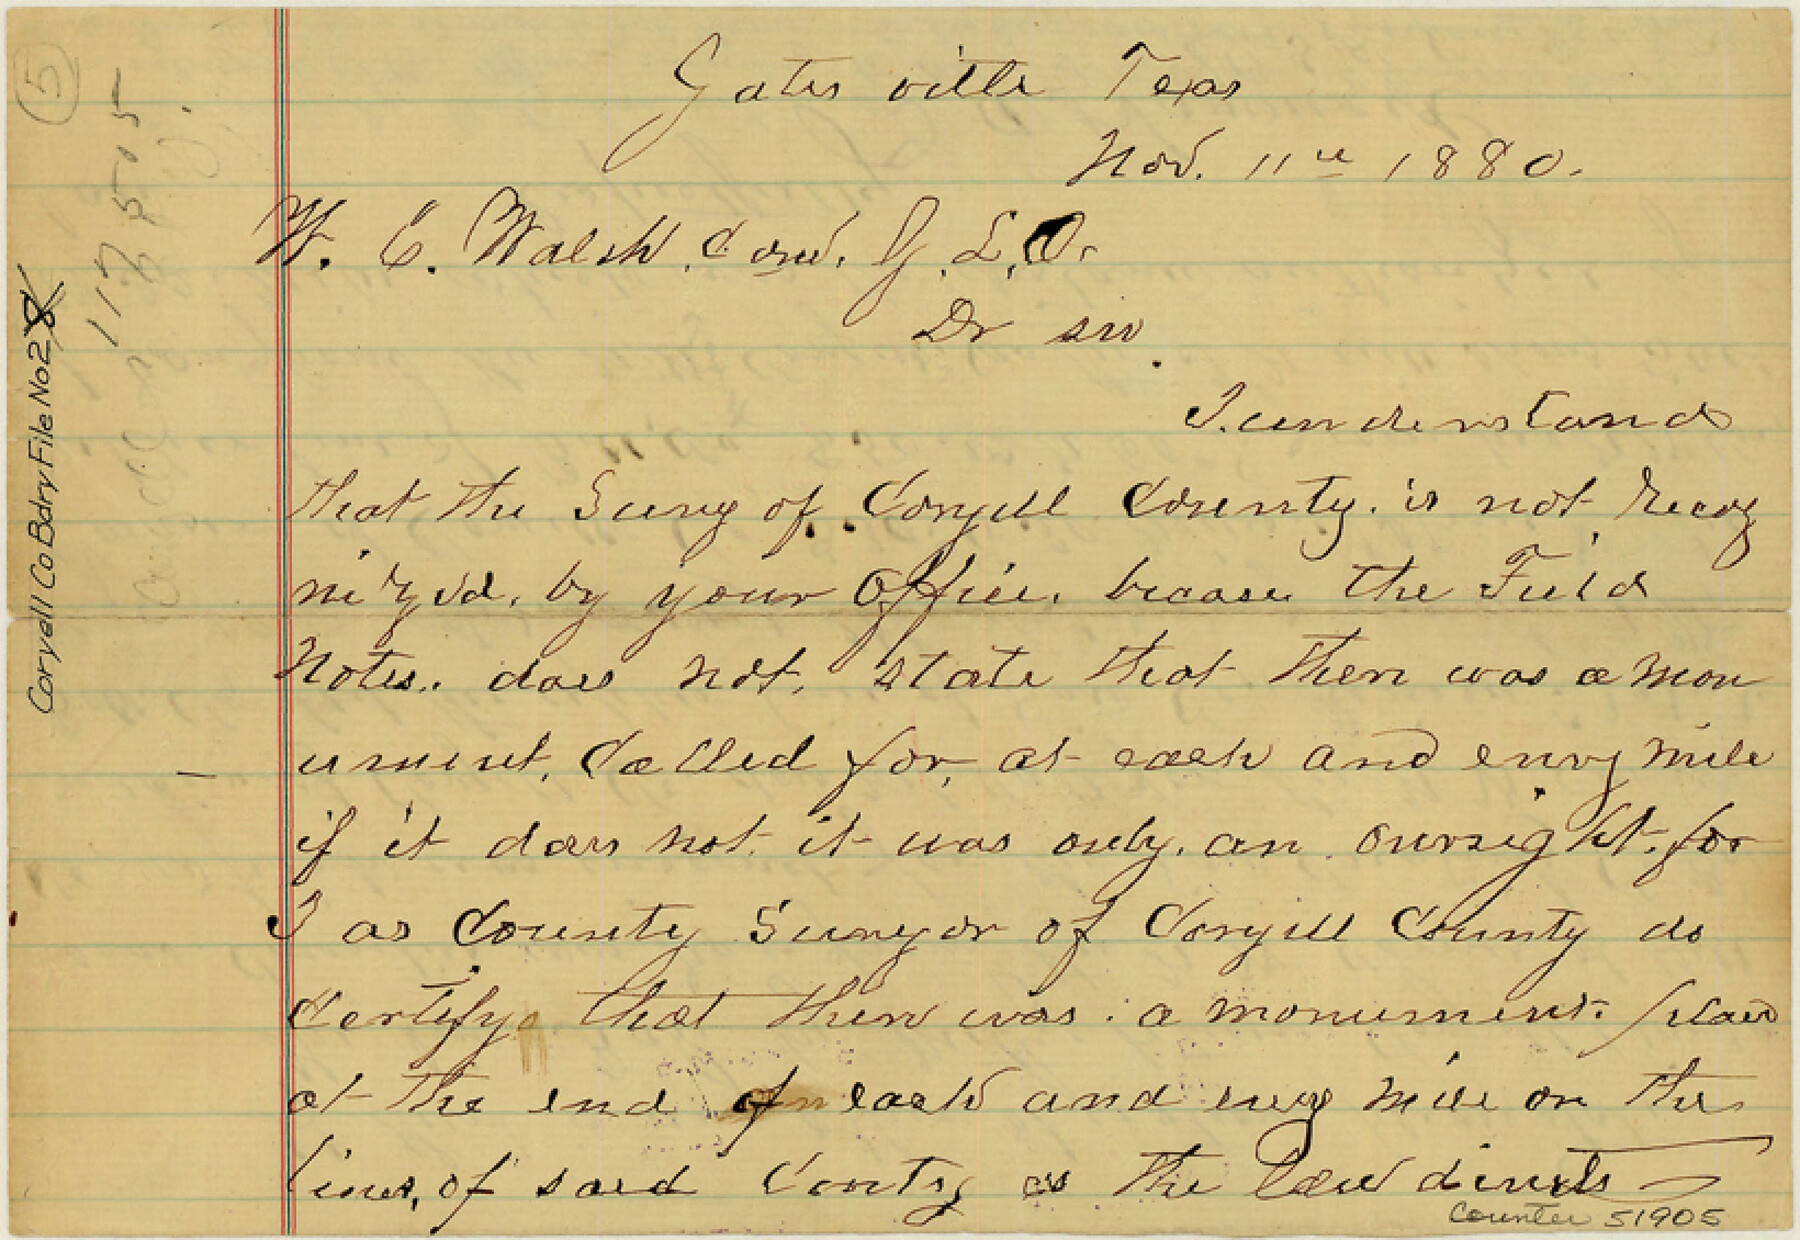 Gatesville Texas
Nov. 11th 1880.
W. C. Walsh. Com. G. L. O.
Dr sir.
I understand
that the Survy of Coryell County. is not recog
nizvd. by your Office. becase the Field
Notes. does not. state that there was a mon
ument. Called for, at each and every mile
if it does not. it was only. an oversight. for
I as County Surveyor of Coryell County do
certify that there was. a monument. placed
at the end of each and every mile on the
lines, of said County as the Law directs
Counter 51905
Coryell Co Bdry File No 2
5